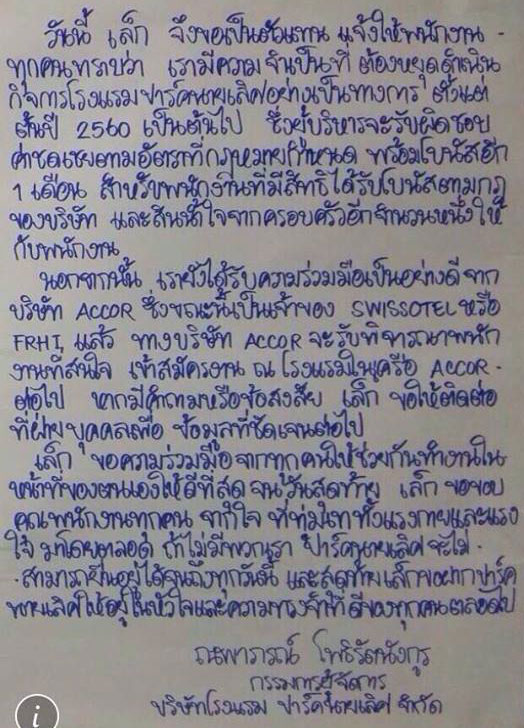 วันนี้ เล็ก จึงขอเป็นตัวแทน แจ้งให้พนักงาน -
ทุกคนทราบว่า เรามีความจำเป็นที่ ต้องหยุดดำเนิน
กิจการโรงแรมปาร์คนายเลิศอย่างเป็นทางการ ตั้งแต่
ต้นปี 2560 เป็นต้นไป ซึ่งผู้บริหารจะรับผิดชอบ
ค่าชดเชยตามอัตราที่กฎหมายกำหนด พร้อมโบนัสอีก
1 เดือน สำหรับพนักงานที่มีสิทธิได้รับโบนัสตามกฎ
ของบริษัท และสินน้ำใจจากครอบครัวอีกจำนวนหนึ่งให้
กับพนักงาน
นอกจากนั้น เรายังได้รับความร่วมมือเป็นอย่างดีจาก
บริษัท ACCOR ซึ่งขณะนี้เป็นเจ้าของ SWISSOTEL หรือ
FRHI แล้ว ทางบริษัท ACCOR จะรับพิจารณาพนัก
งานที่สนใจ เข้าสมัครงาน ณ โรงแรมในเครือ ACCOR -
ต่อไป หากมีคำถามหรือข้อสงสัย เล็ก ขอให้ติดต่อ
ที่ฝ่ายบุคคลเพื่อ ข้อมูลที่ชัดเจนต่อไป
เล็ก ขอความร่วมมือจากทุกคนให้ช่วยกันทำงานใน
หน้าที่ของตนเองให้ดีที่สุด จนวันสุดท้าย เล็ก ขอขอบ
คุณพนักงานทุกคน จากใจ ที่ทุ่มเททั้งแรงกายและแรง
ใจ มาโดยตลอด ถ้าไม่มีพวกเรา ปาร์คนายเลิศจะไม่ -
- สามารถยืนอยู่ได้จนถึงทุกวันนี้ และสุดท้ายเล็กขอฝากปาร์ค
นายเลิศให้อยู่ในหัวใจและความทรงจำที่ดีของทุกคนตลอดไป
ณพาภรณ์ โพธิรัตนังกูร
กรรมการผู้จัดการ
บริษัทโรงแรม ปาร์คนายเลิศ จำกัด